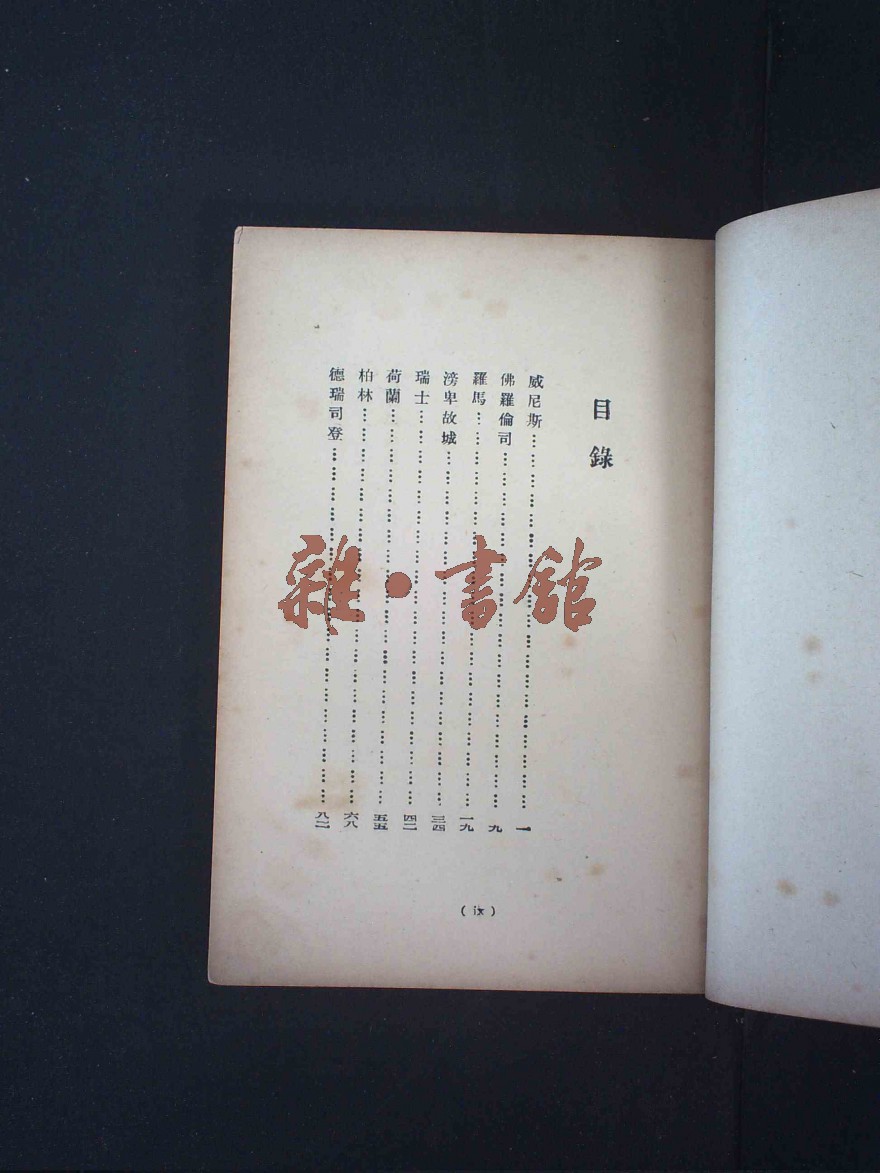 目錄
威尼斯…………………………………………一
佛羅倫司…………………………………………九
羅馬…………………………………………一九
滂卑故城…………………………………………三四
瑞士…………………………………………四二
荷蘭…………………………………………五五
柏林…………………………………………六八
德瑞司登…………………………………………八二
(ix)
雜·書館